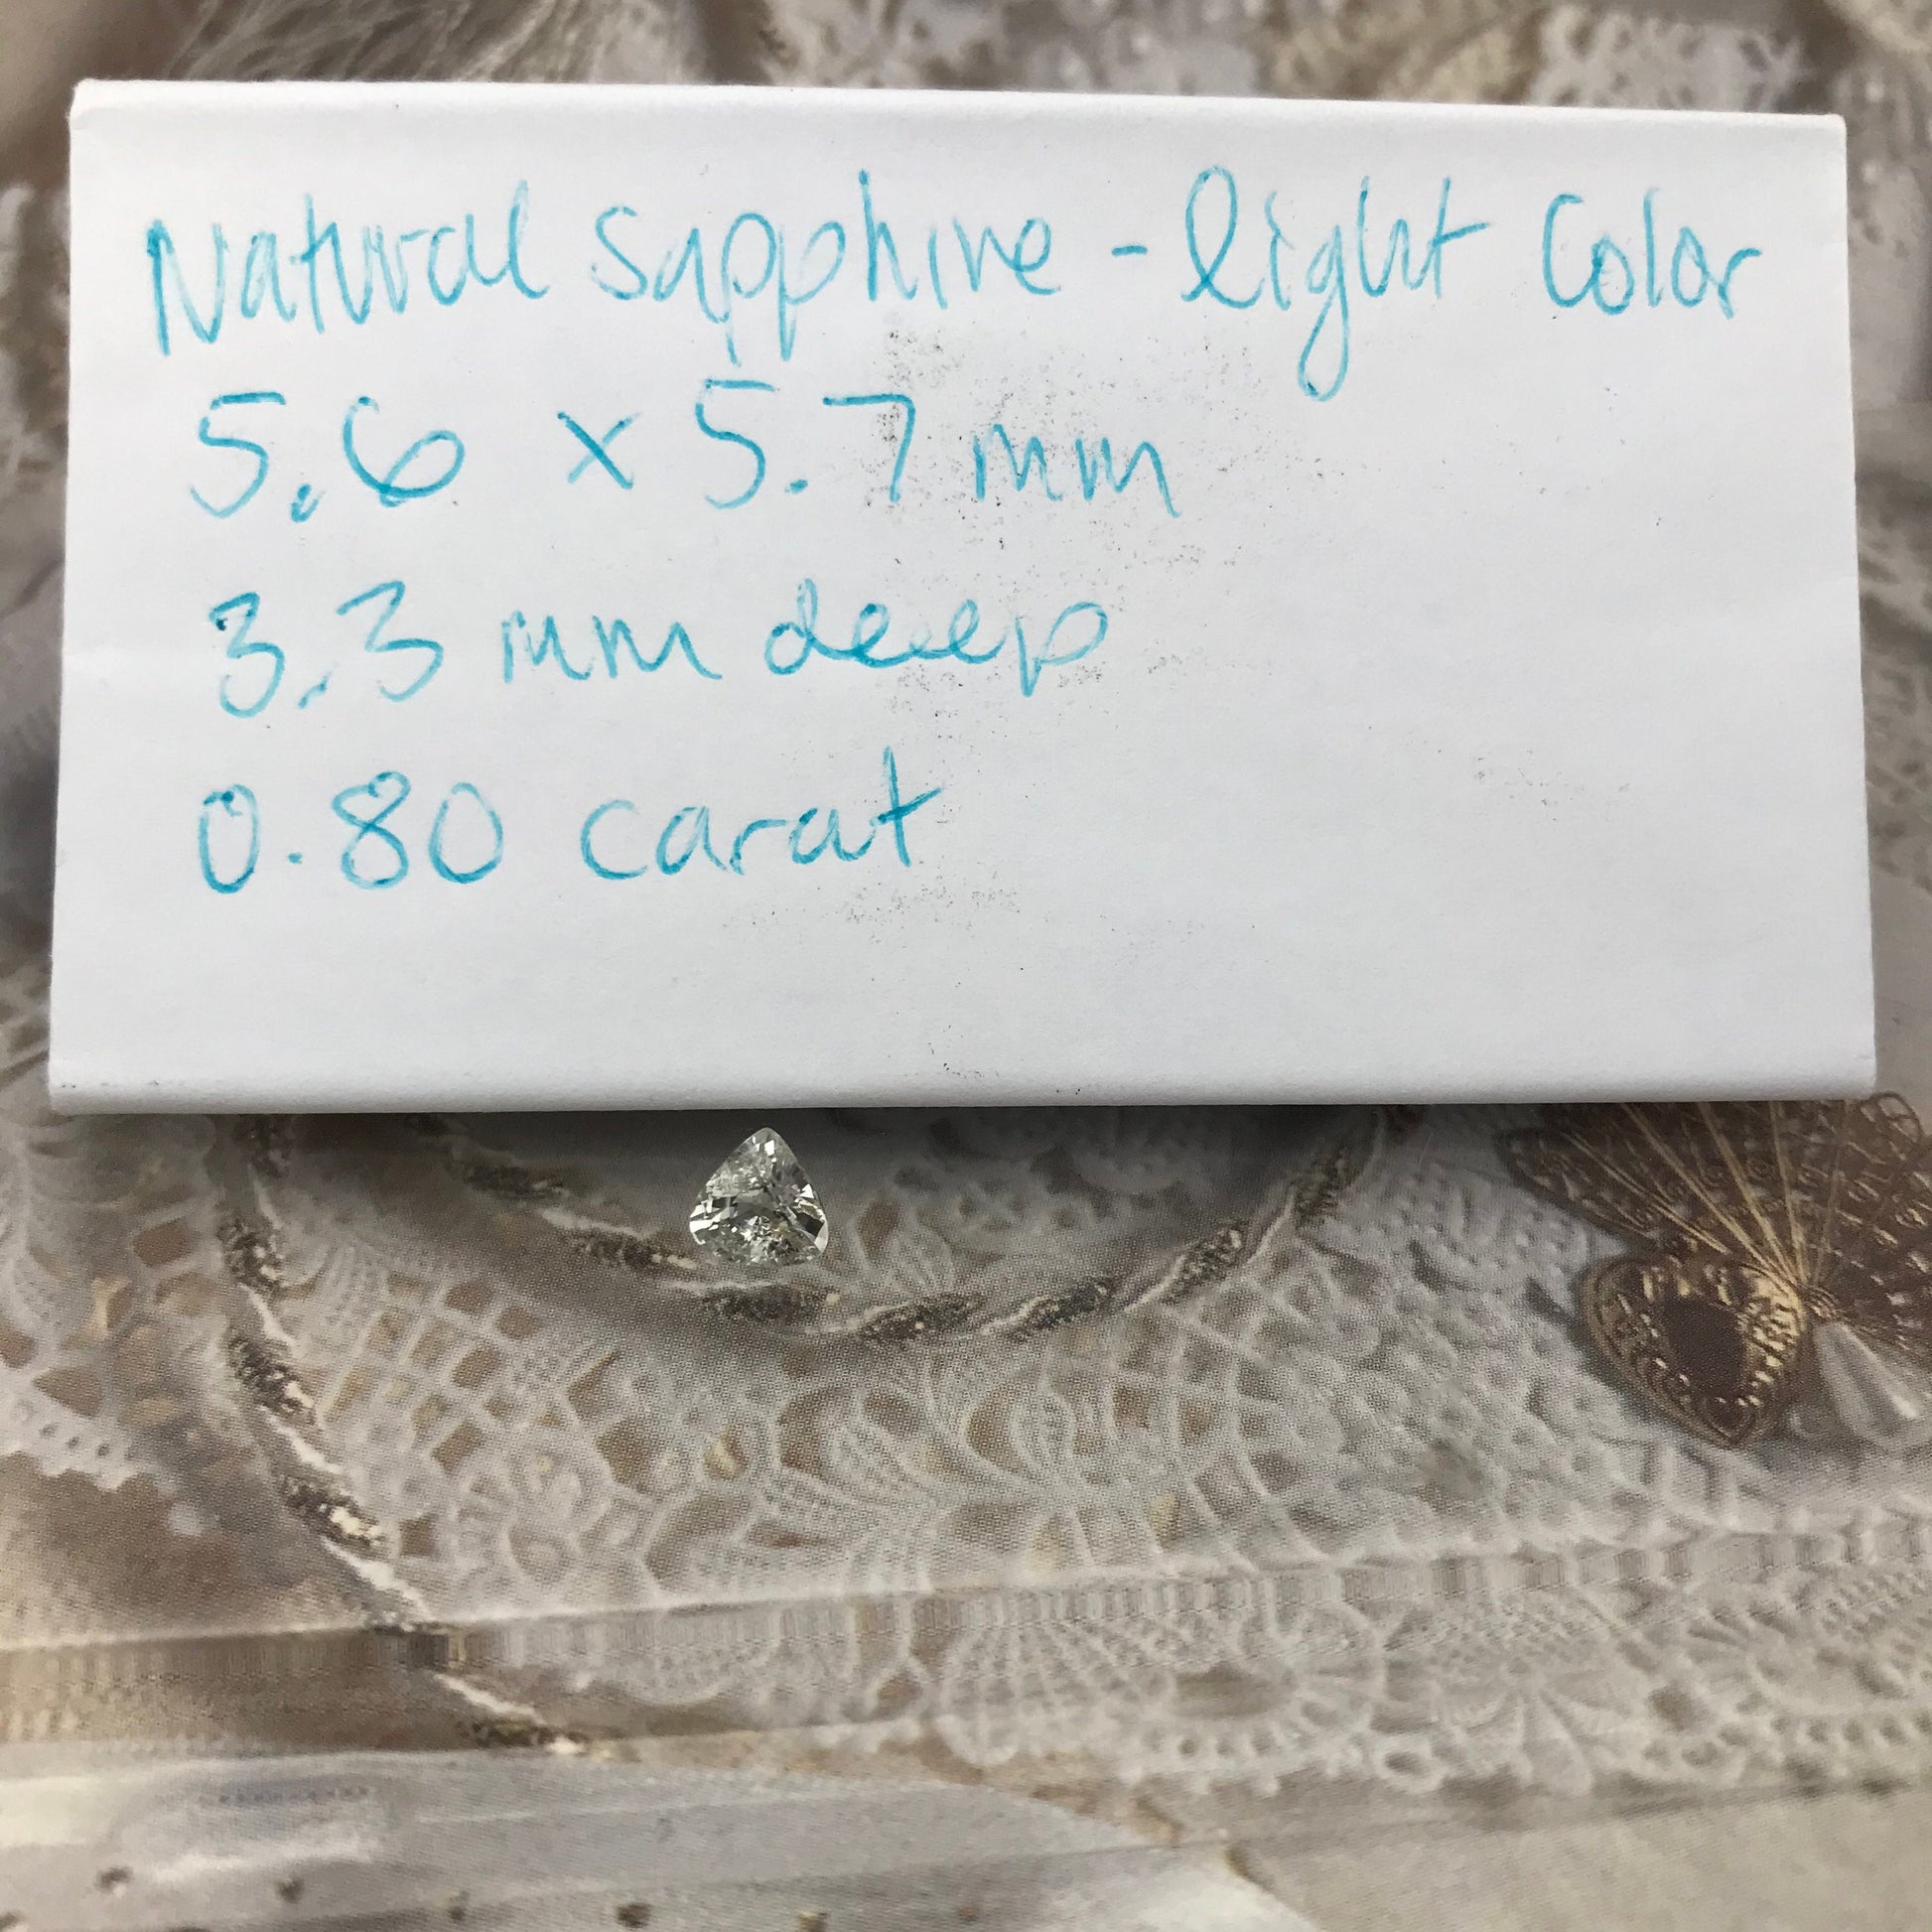 Natural sapphire - light Color
5.6 x 5.7 mm
3.3 mm deep
0.80 carat